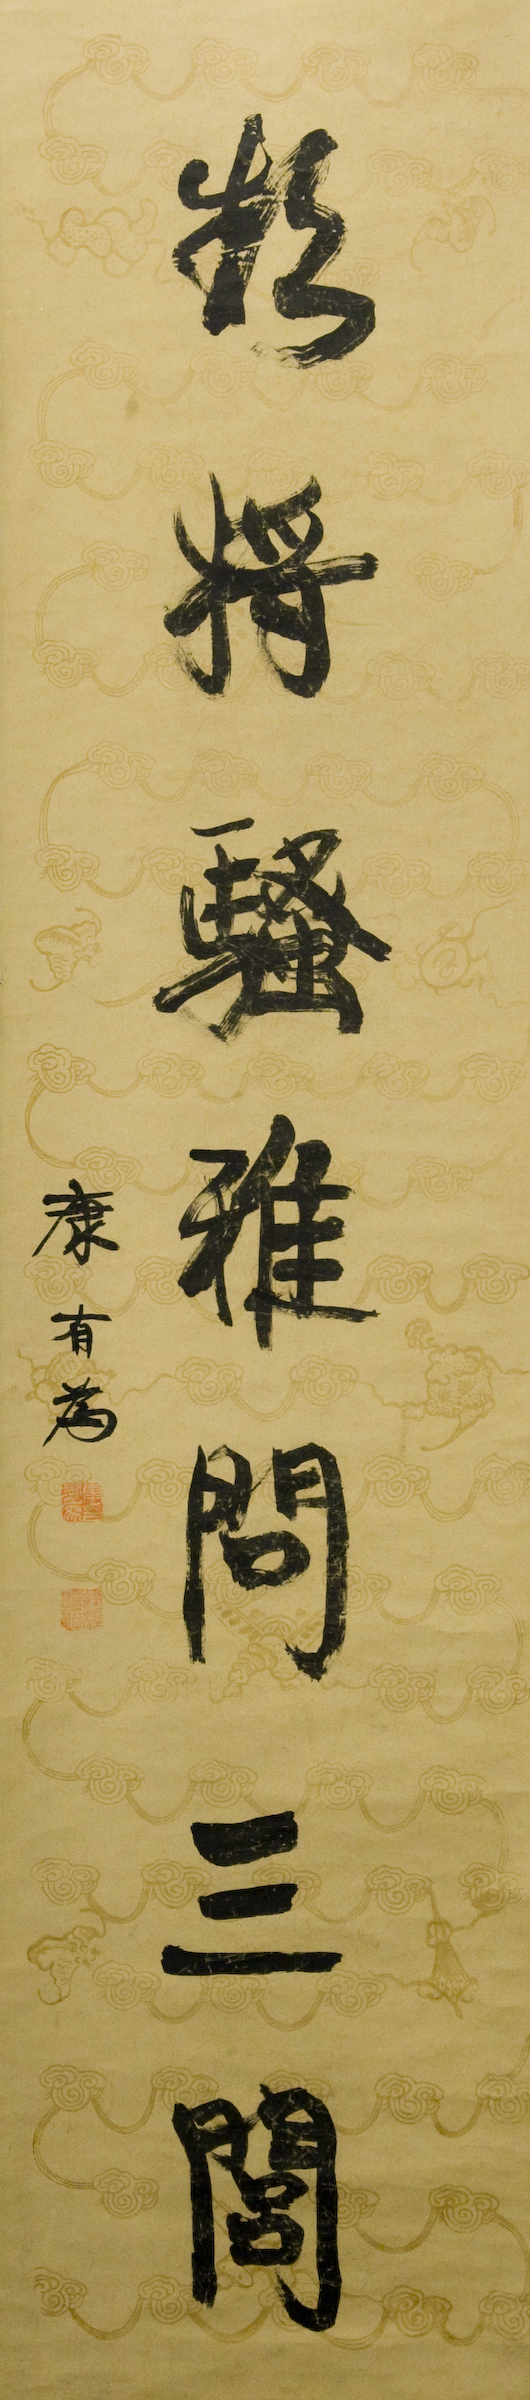 將騷雅問三閭
康有為